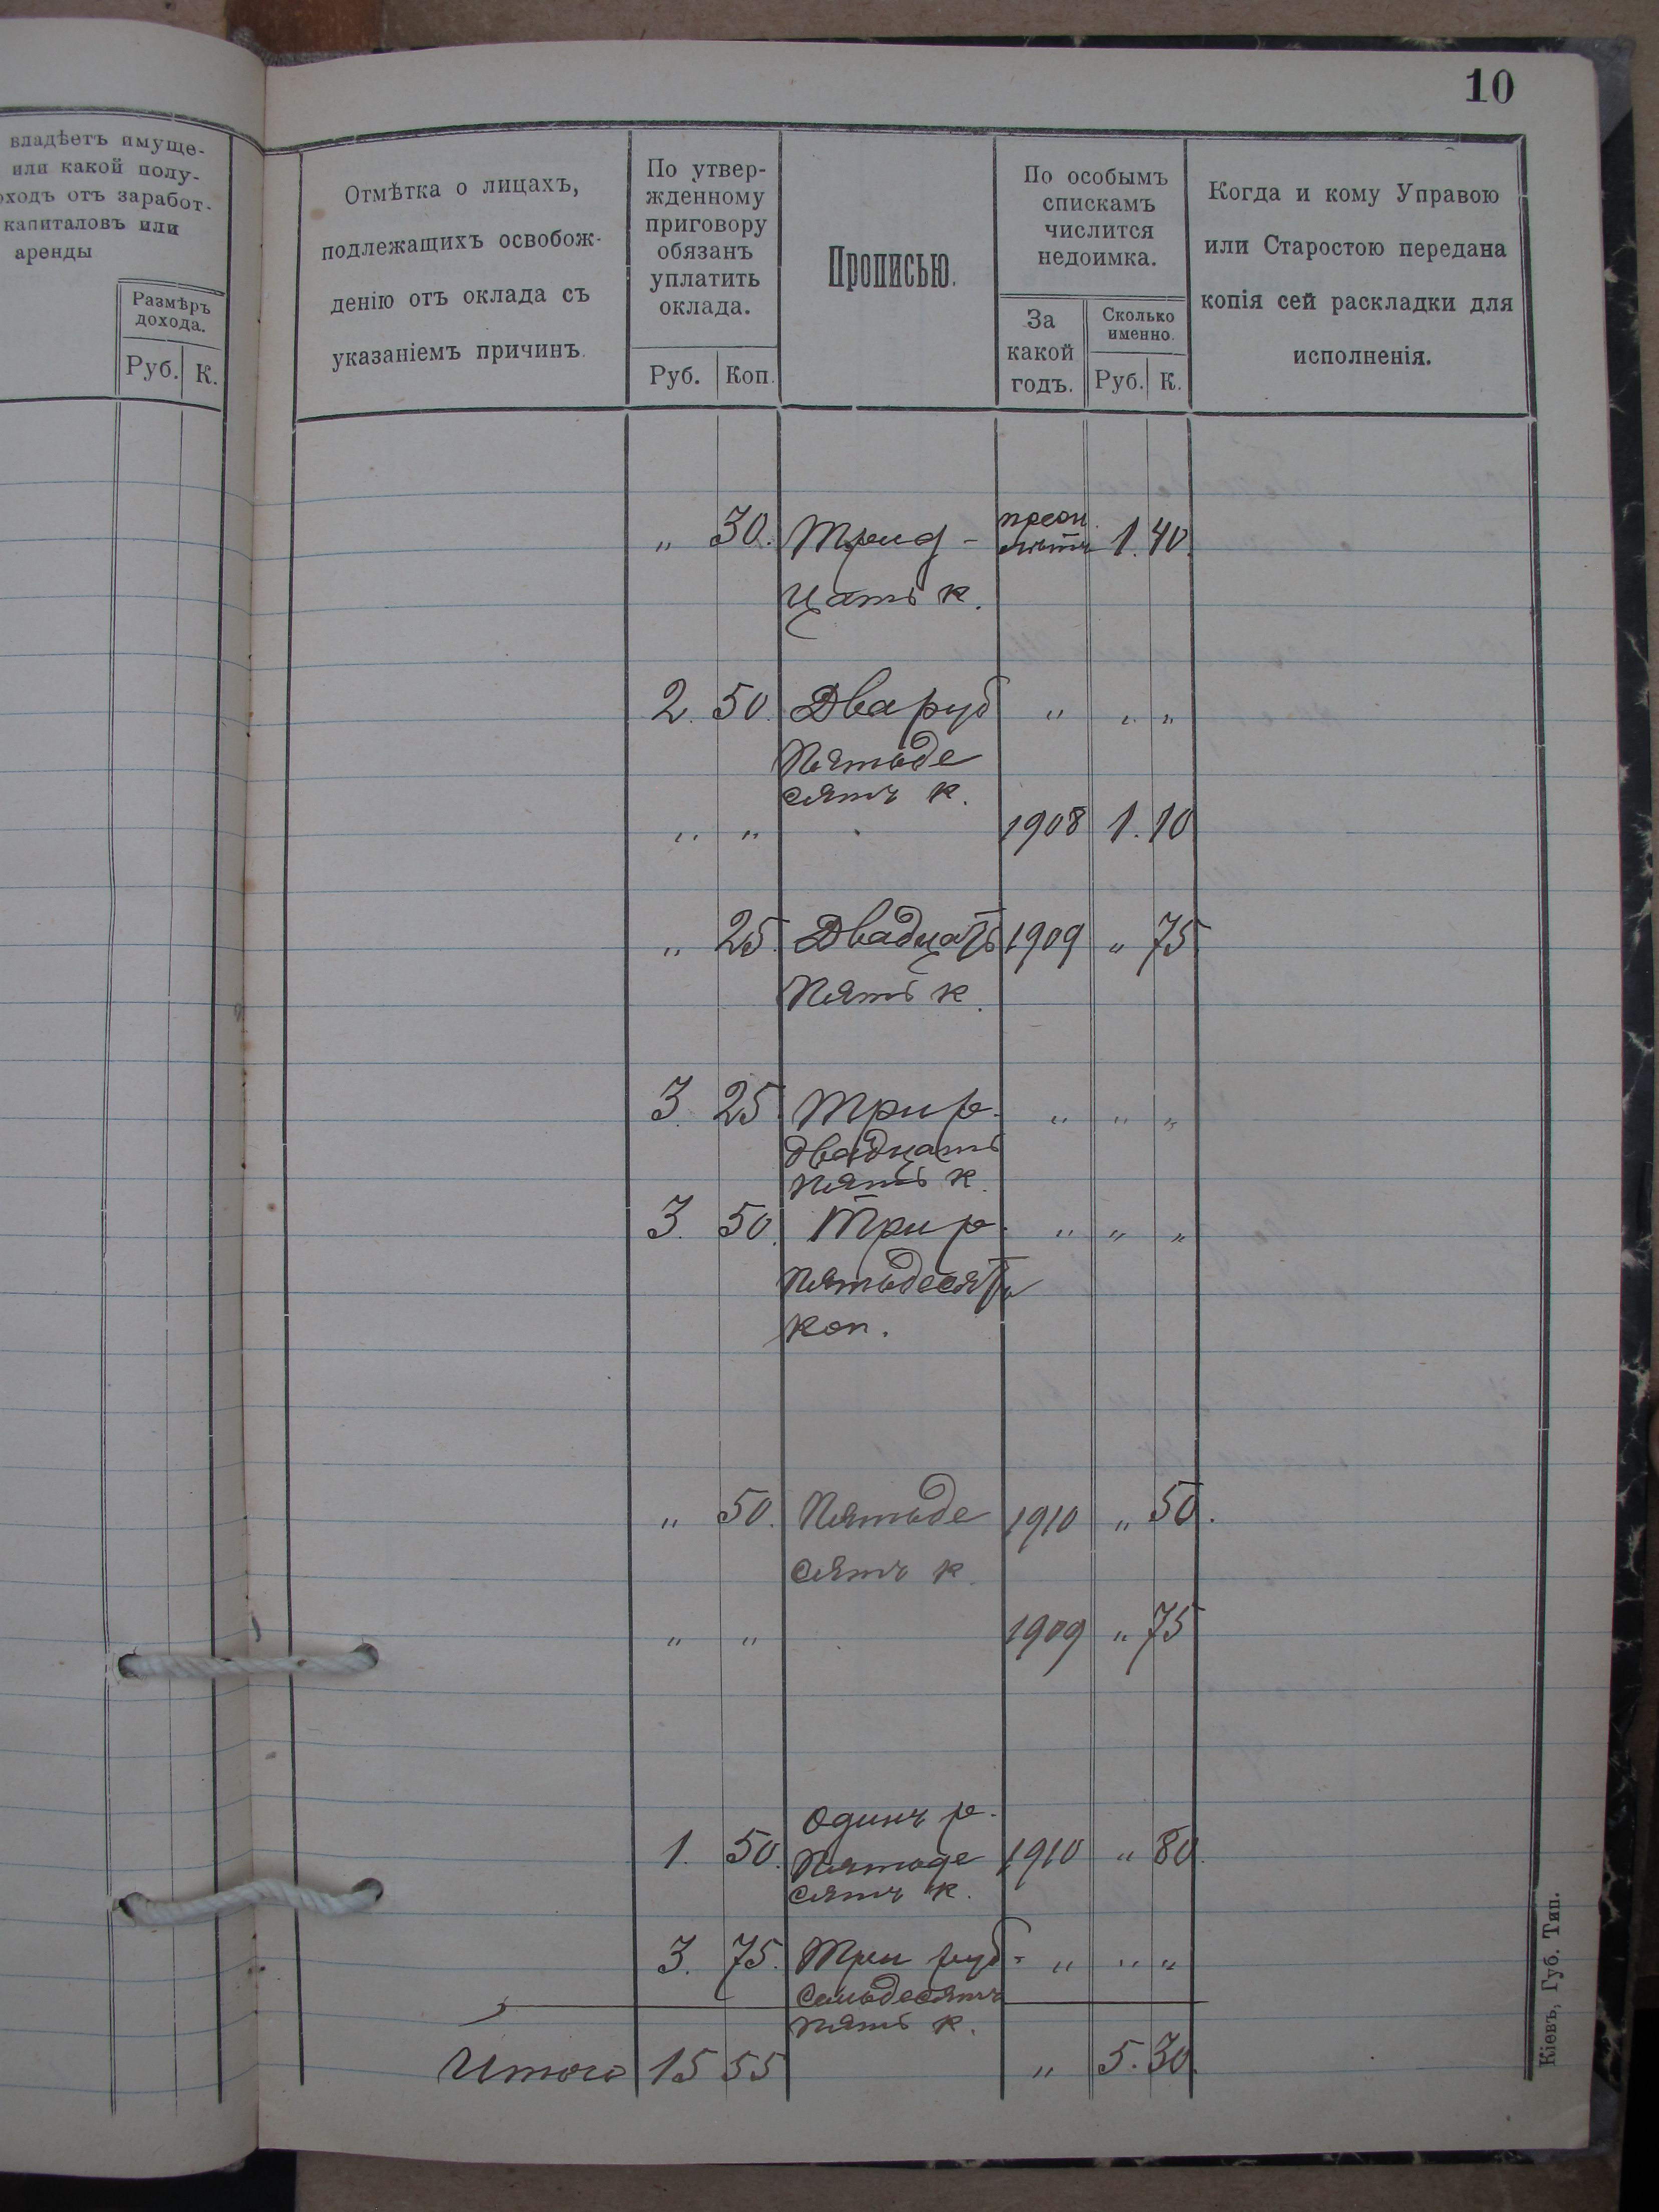 10
владѣетъ имуще-
или какой полу-
оходъ отъ заработ-
капиталовъ или
аренды
Размѣръ
дохода.
Руб. К.
Отмѣтка о лицахъ,
подлежащихъ освобож-
денію отъ оклада съ
указаніемъ причинъ.
По утвер-
жденному
приговору
обязанъ
уплатить
оклада.
Руб. Коп.
Прописью.
По особымъ
спискамъ
числится
недоимка.
За
какой
годъ.
Сколько
именно.
Руб. К.
Когда и кому Управою
или Старостою передана
копія сей раскладки для
исполненія.
„ 30. Трид- 1. 40.
цать к.
2. 50. Два руб „ „ „
Пятьде
сятъ к.
„ „ 1908 1. 10
„ 25. Двадцать 1909 „ 75.
Пять к.
3. 25. Три р. „ „ „
двадцать
пять к.
3. 50. Три р. „ „ „
Пятьдесятъ
Коп.
„ 50. Пятьде 1910 „ 50.
сятъ к.
„ „ 1909 „ 75
Одинъ р.
1. 50. Пятьде 1910 „ 80.
сятъ к.
3. 75. Три руб- „ „ „
Семьдесятъ
пять к.
Итого 15 55 „ 5. 30.
Кіевъ, Губ. Тип.